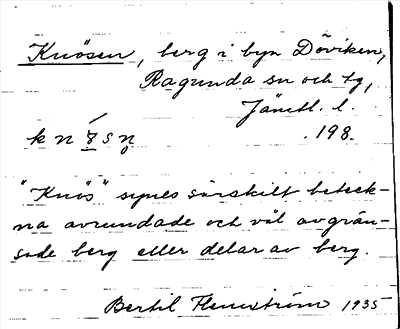 Knösen, berg i byn Döviken,
Ragunda sn och tg,
Jämtl. l.
.198.
"Knös" synes särskilt beteck-
na avrundade och väl avgrän-
sade berg eller delar av berg.
Bertil Flemström 1935